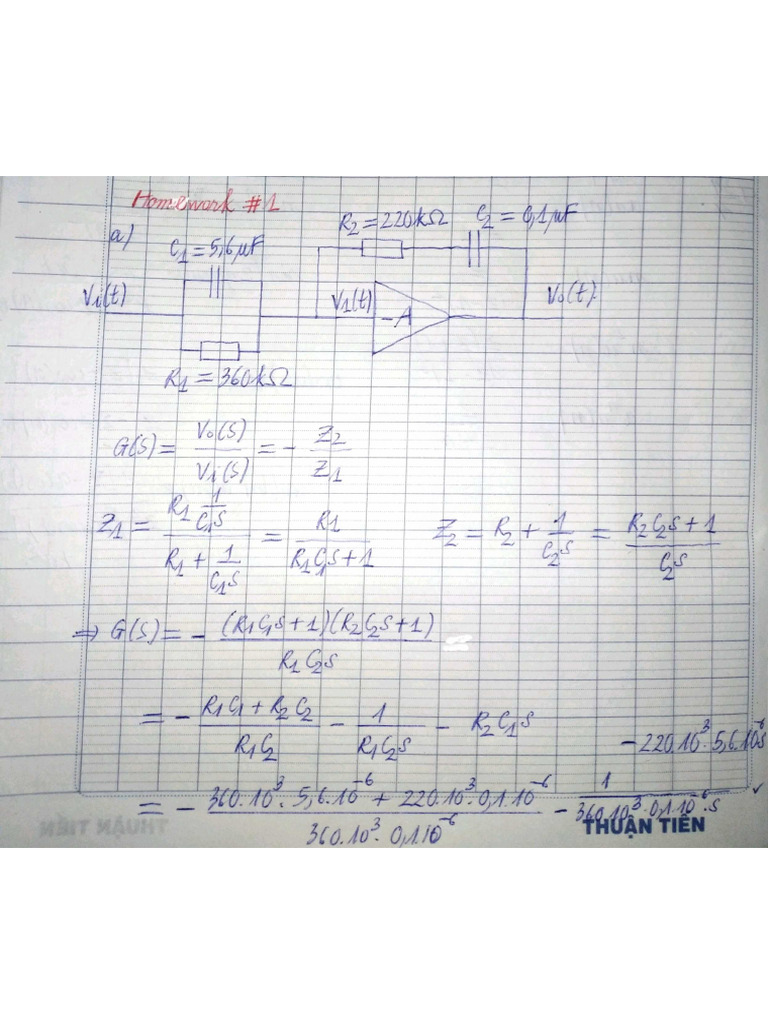 Homework #1
a)
C₁ = 5,6µF
R₂ = 220kΩ
C₂ = 0,1µF
Vi(t)
V1(t)
-A
V₀(t).
R₁ = 360kΩ
G(S) = V₀(S) / Vi(S) = - Z₂ / Z₁
Z₁ = (R₁ 1/C₁S) / (R₁ + 1/C₁S) = R1 / (R₁C₁S + 1)
Z₂ = R₂ + 1/C₂S = (R₂C₂S + 1) / C₂S
⇒ G(S) = - (R₁C₁S + 1)(R₂C₂S + 1) / R₁C₂S
= - (R₁C₁ + R₂C₂) / R₁C₂ - 1 / R₁C₂S - R₂C₁S
= - (360.10³. 5,6.10⁻⁶ + 220.10³.0,1.10⁻⁶) / (360.10³. 0,1.10⁻⁶) - 1 / (360.10³.0,1.10⁻⁶.s) - 220.10³. 5,6.10⁻⁶s
THUẬN TIẾN